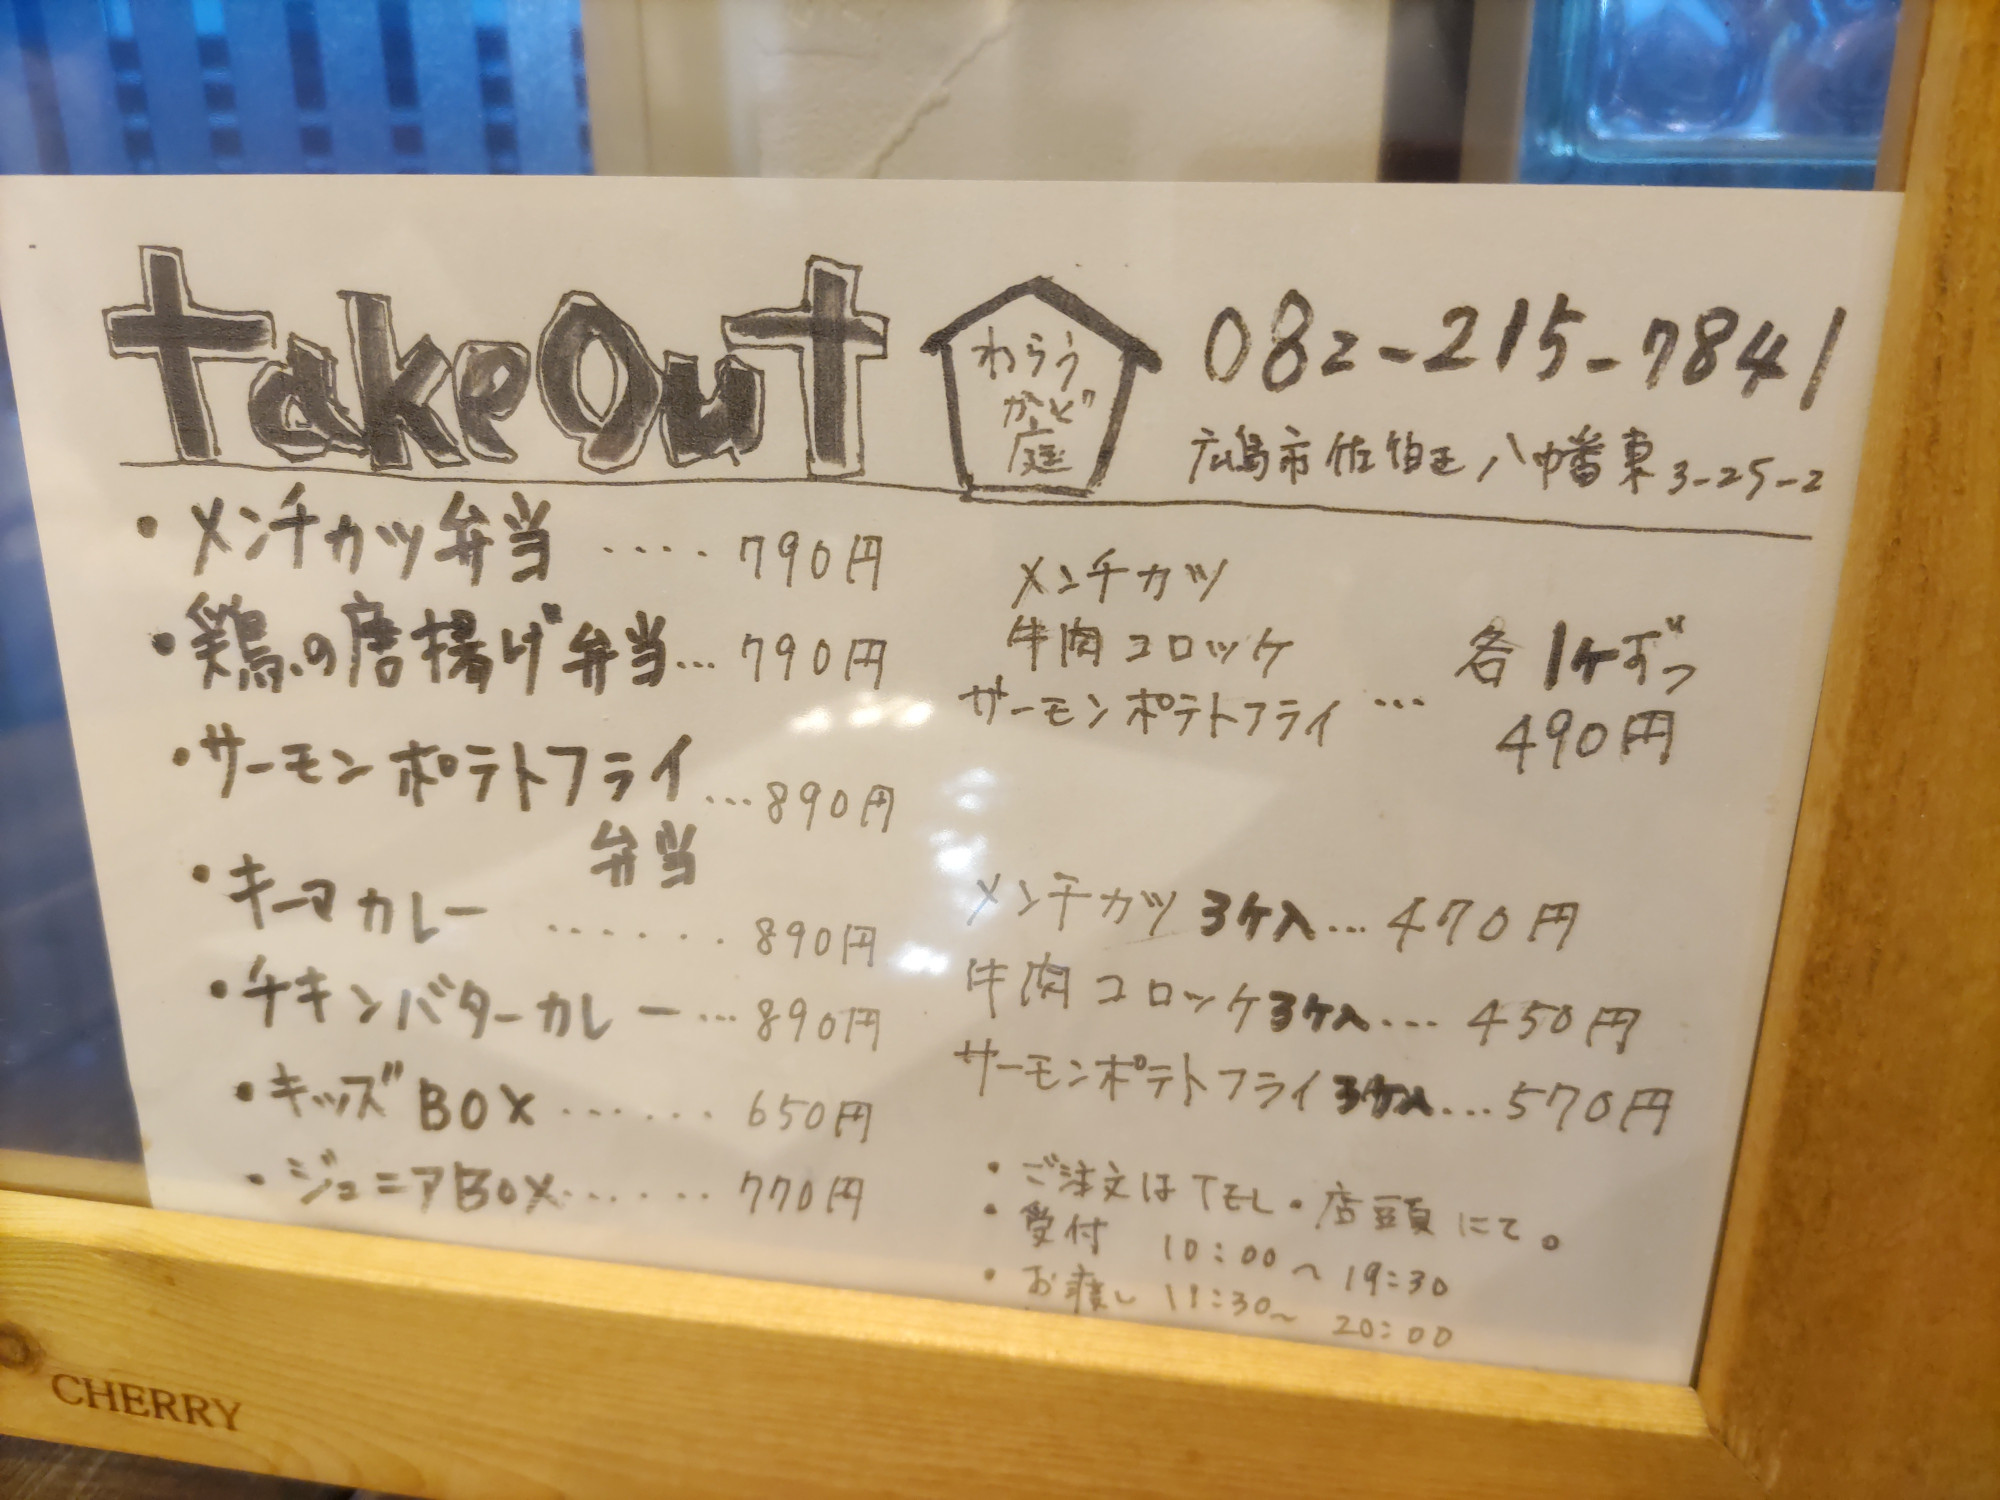 takeout
わらう
かど
庭
082-215-7841
広島市佐伯区八幡東3-25-2
・メンチカツ弁当 ‥‥ 790円
・鶏の唐揚げ弁当… 790円
・サーモンポテトフライ
弁当 …890円
・キーマカレー ‥‥‥ 890円
・チキンバターカレー… 890円
・キッズBOX ‥‥‥ 650円
・ジュニアBOX ‥‥‥ 770円
メンチカツ
牛肉コロッケ
サーモンポテトフライ …
各1ケずつ
490円
メンチカツ3ケ入… 470円
牛肉コロッケ3ケ入… 450円
サーモンポテトフライ3ケ入… 570円
・ご注文はTEL・店頭にて。
・受付 10:00〜19:30
・お渡し 11:30〜20:00
CHERRY